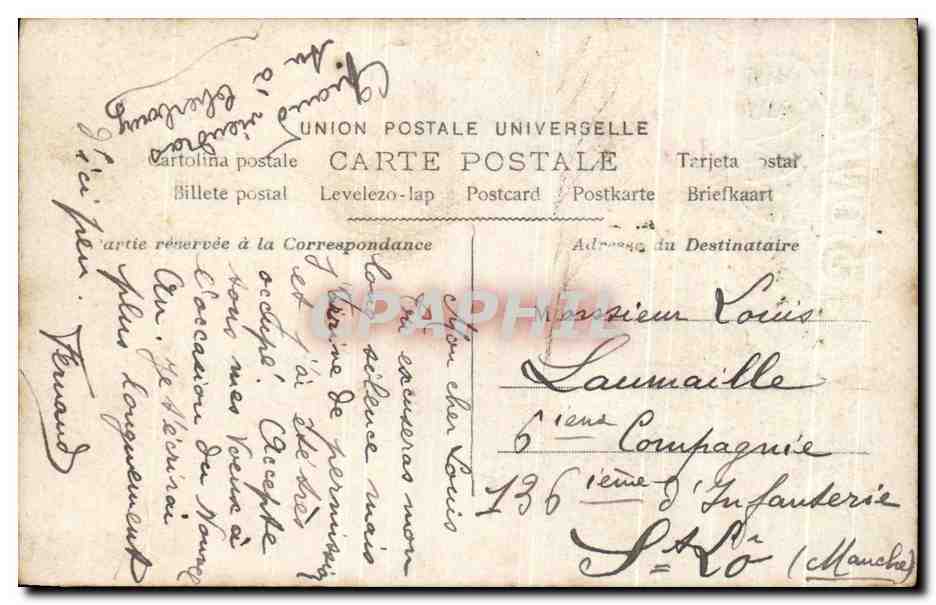 Quand viendras
tu à Cherbourg
UNION POSTALE UNIVERSELLE
Cartolina postale CARTE POSTALE Tarjeta postal
Billete postal Levelezo-lap Postcard Postkarte Briefkaart
Partie réservée à la Correspondance
Adresse du Destinataire
Mon cher Louis
Tu excuseras mon
long silence mais
j'arrive de permission
et j'ai été très
occupé. Accepte
tous mes Voeux à
l'occasion du Nouvel
An. Je t'écrirai
plus longuement
d'ici peu.
Fernand
Monsieur Louis
Laumaille
6ième Compagnie
136ième d'Infanterie
St Lô (Manche)
CPAPHIL